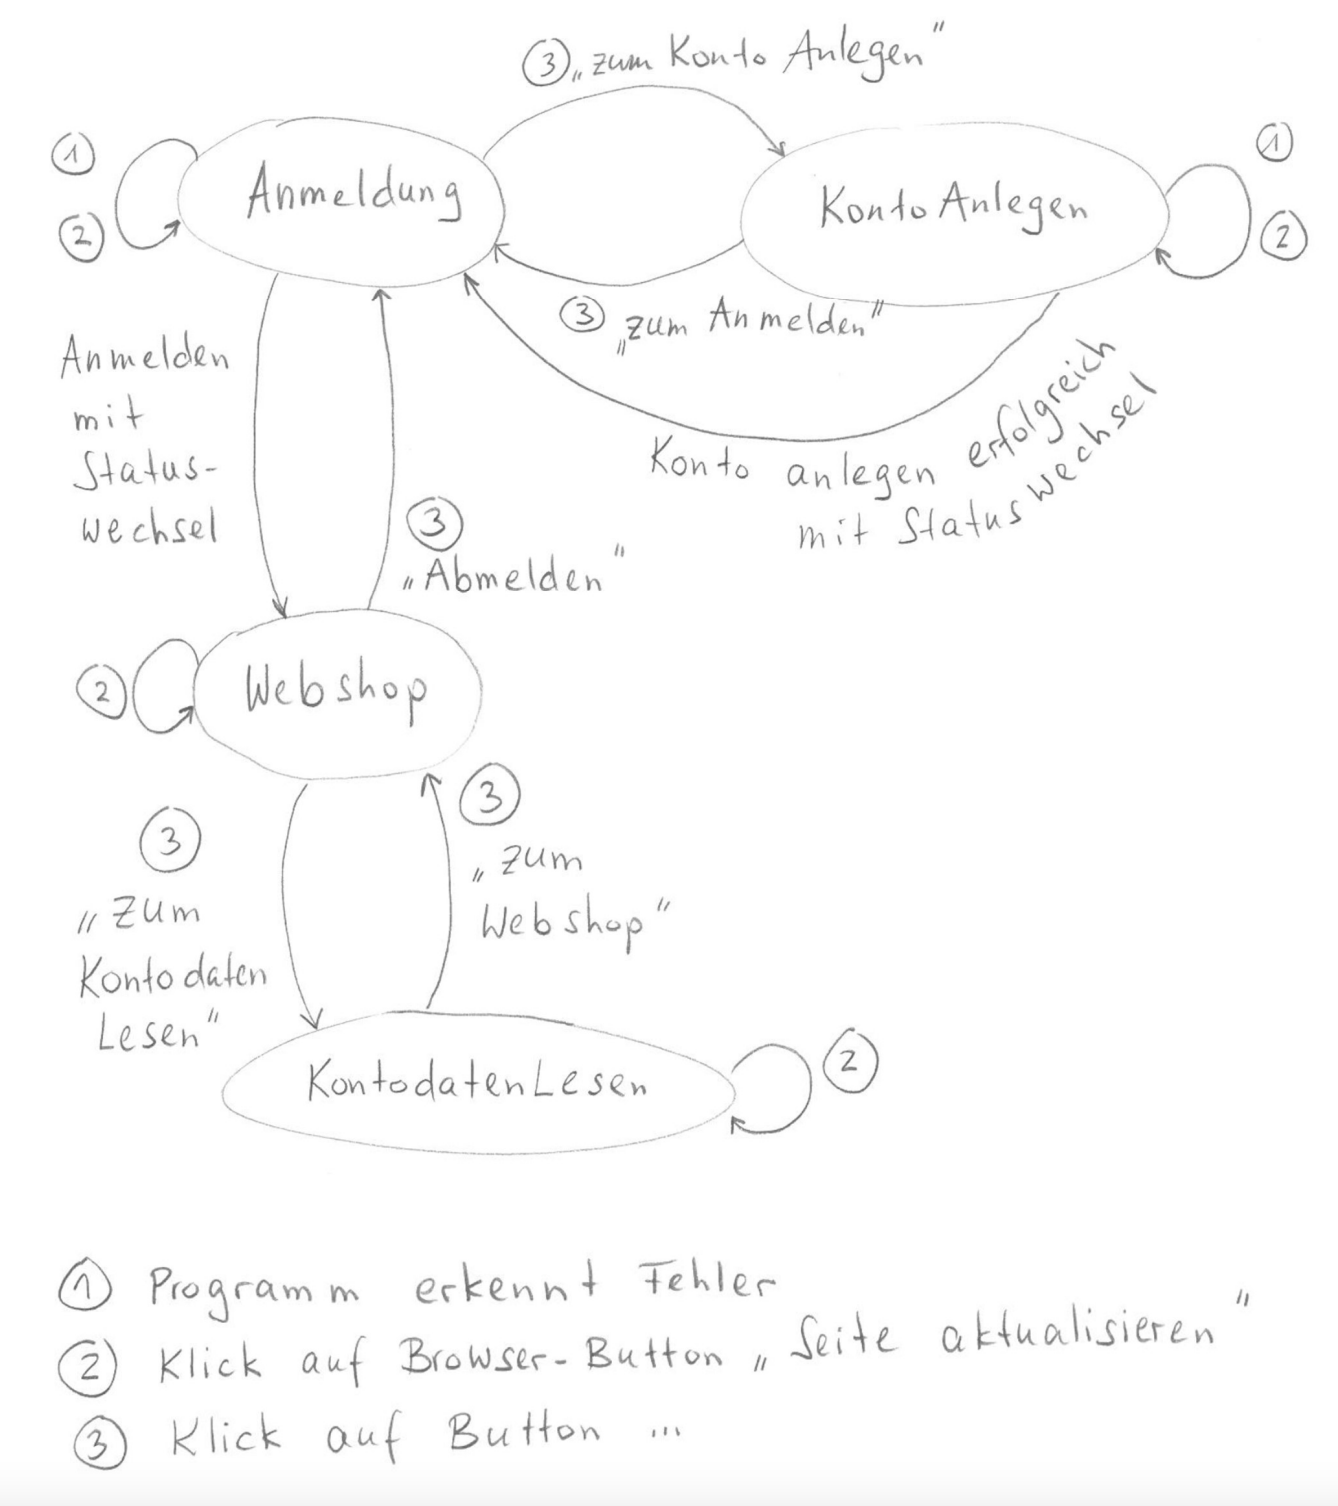 ③ „zum Konto Anlegen“
①
②
Anmeldung
KontoAnlegen
①
②
③ „zum Anmelden“
Anmelden
mit
Status-
wechsel
Konto anlegen erfolgreich
mit Statuswechsel
③
„Abmelden“
②
Webshop
③
„zum
Kontodaten
Lesen“
③
„zum
Webshop“
KontodatenLesen
②
① Programm erkennt Fehler
② Klick auf Browser-Button „Seite aktualisieren“
③ Klick auf Button ...